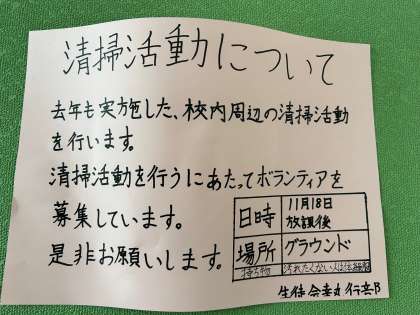 清掃活動について
去年も実施した、校内周辺の清掃活動
を行います。
清掃活動を行うにあたってボランティアを
募集しています。
是非お願いします。
日時 11月18日
放課後
場所 グラウンド
持ち物 汚れたくない人は体操服
生徒会執行部